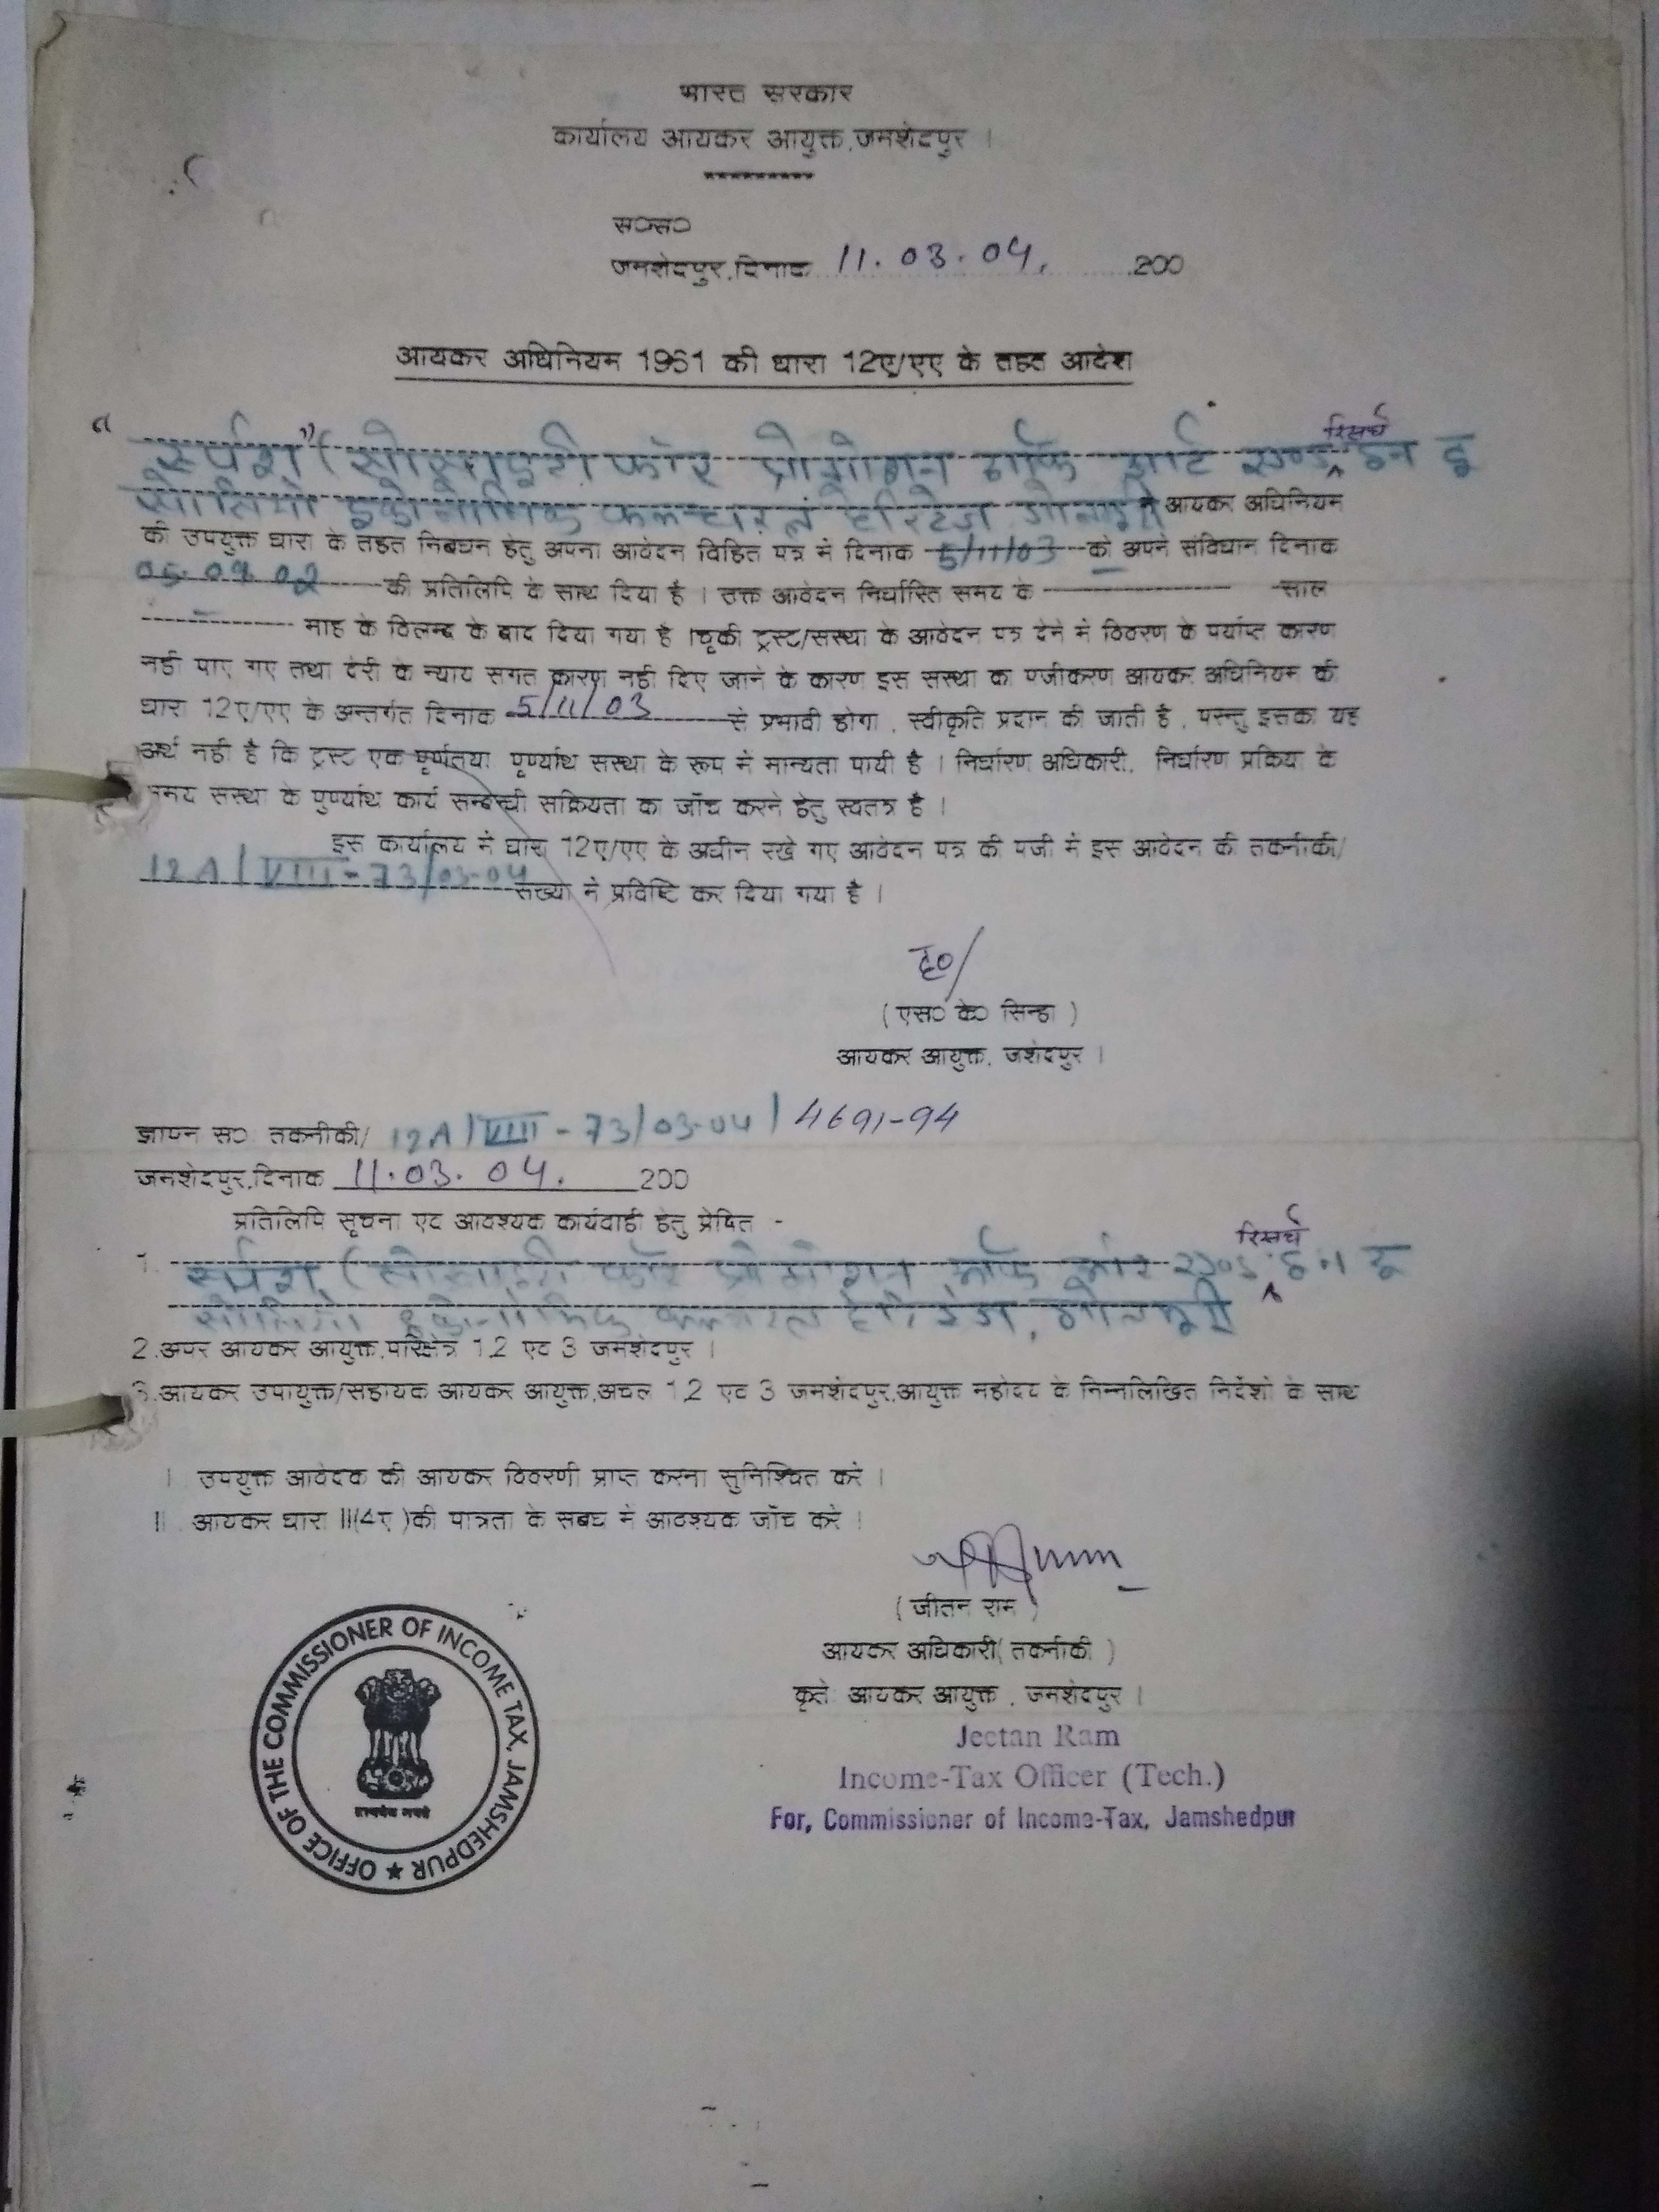 भारत सरकार
कार्यालय आयकर आयुक्त,जमशेदपुर ।
**********
स०स०
जमशेदपुर,दिनाक 11.03.04. 200
आयकर अधिनियम 1961 की धारा 12ए/एए के तहत आदेश
रिसर्च
"स्पर्श" (सोसाइटी फॉर प्रोमोशन ऑफ आर्ट एण्ड इन टू
सोसियो इकोनोमिक कल्चरल हेरिटेज, गोलमुरी ने आयकर अधिनियम
की उपयुक्त धारा के तहत निबधन हेतु अपना आवेदन विहित पत्र में दिनाक 5/11/03 को अपने संविधान दिनाक
05.09.02 की प्रतिलिपि के साथ दिया है । उक्त आवेदन निर्धारित समय के साल
माह के विलम्ब के बाद दिया गया है ।चूकी ट्रस्ट/सस्था के आवेदन पत्र देने में विवरण के पर्याप्त कारण
नही पाए गए तथा देरी के न्याय सगत कारण नही दिए जाने के कारण इस सस्था का पजीकरण आयकर अधिनियम की
धारा 12ए/एए के अन्तर्गत दिनाक 5/11/03 से प्रभावी होगा , स्वीकृति प्रदान की जाती है , परन्तु इसका यह
अर्थ नही है कि ट्रस्ट एक पूर्णतया पूर्ण्याथ सस्था के रूप में मान्यता पायी है । निर्धारण अधिकारी, निर्धारण प्रकिया के
समय सस्था के पुण्यांथ कार्य सम्बन्धी सक्रियता का जाँच करने हेतु स्वतत्र है ।
इस कार्यालय में धारा 12ए/एए के अधीन रखे गए आवेदन पत्र की पजी में इस आवेदन की तकनीकी/
12A/VIII-73/03-04 सख्या में प्रविष्टि कर दिया गया है ।
ह०/
(एस० के० सिन्हा )
आयकर आयुक्त, जशेदपुर ।
ज्ञापन स० तकनीकी/ 12A/VIII-73/03-04/4691-94
जमशेदपुर,दिनाक 11.03.04. 200
प्रतिलिपि सूचना एव आवश्यक कार्यवाही हेतु प्रेषित -
रिसर्च
1. स्पर्श, (सोसाइटी फॉर प्रोमोशन ऑफ आर्ट एण्ड इन टू
सोसियो इकोनोमिक कल्चरल हेरिटेज, गोलमुरी
2.अपर आयकर आयुक्त,परिक्षेत्र 1,2 एव 3 जमशेदपुर ।
3.आयकर उपायुक्त/सहायक आयकर आयुक्त,अचल 1,2 एव 3 जमशेदपुर,आयुक्त महोदय के निम्नलिखित निर्देशो के साथ
I उपयुक्त आवेदक की आयकर विवरणी प्राप्त करना सुनिश्चित करे ।
II आयकर धारा 11(4ए )की पात्रता के सबध में आवश्यक जाँच करे ।
( जीतन राम )
आयकर अधिकारी( तकनीकी )
कृते आयकर आयुक्त , जमशेदपुर ।
Jeetan Ram
Income-Tax Officer (Tech.)
For, Commissioner of Income-Tax, Jamshedpur
OFFICE OF THE COMMISSIONER OF INCOME TAX, JAMSHEDPUR ★
सत्यमेव जयते